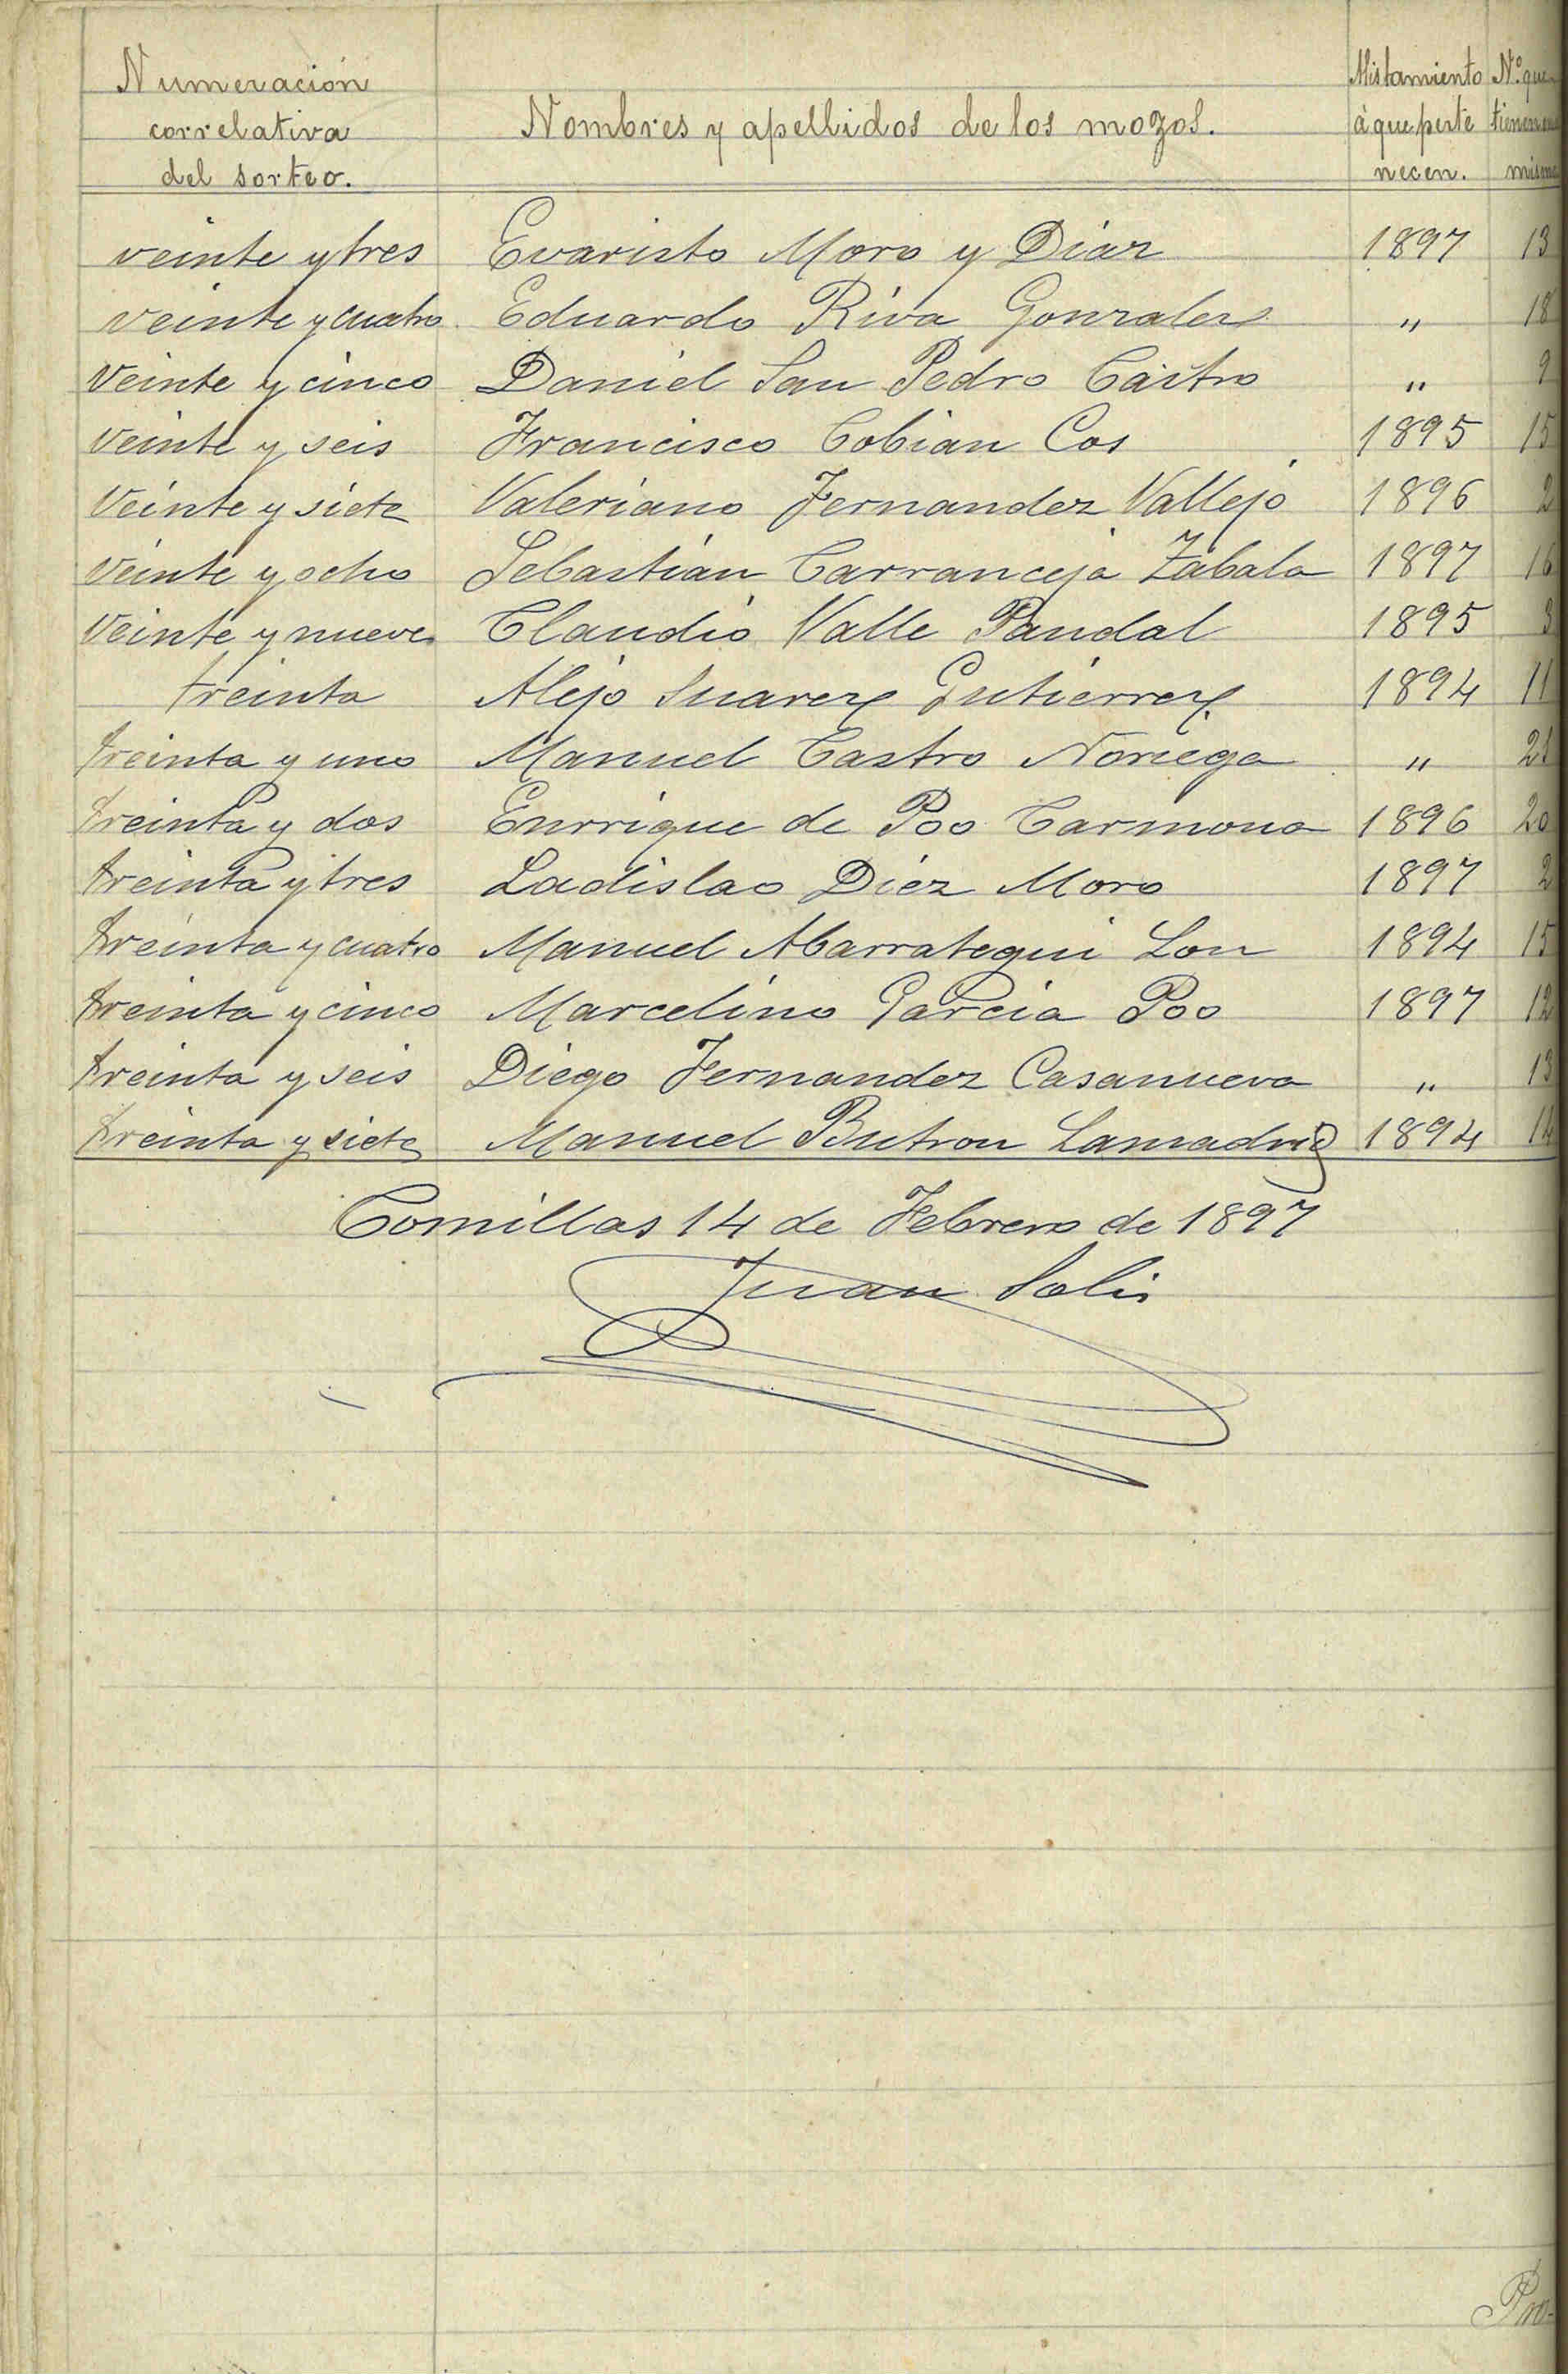 Numeración correlativa del sorteo. Nombres y apellidos de los mozos. Alistamiento à que perte necen. N.º que tienen mismo
veinte y tres Evaristo Moro y Diaz 1897 13
veinte y cuatro Eduardo Riva Gonzalez " 18
Veinte y cinco Daniel San Pedro Castro " 9
Veinte y seis Francisco Cobian Cos 1895 15
Veinte y siete Valeriano Fernandez Vallejo 1896 2
Veinte y ocho Sebastián Carranceja Zabala 1897 16
Veinte y nueve Claudio Valle Pandal 1895 3
treinta Alejo Suarez Gutierrez 1894 11
treinta y uno Manuel Castro Noriega " 21
treinta y dos Enrrique de Poo Carmona 1896 20
treinta y tres Ladislao Diez Moro 1897 2
treinta y cuatro Manuel Abarrategui Lon 1894 15
treinta y cinco Marcelino Garcia Poo 1897 12
treinta y seis Diego Fernandez Casanueva " 13
treinta y siete Manuel Butron Lamadrid 1894 14
Comillas 14 de Febrero de 1897
Juan Solis